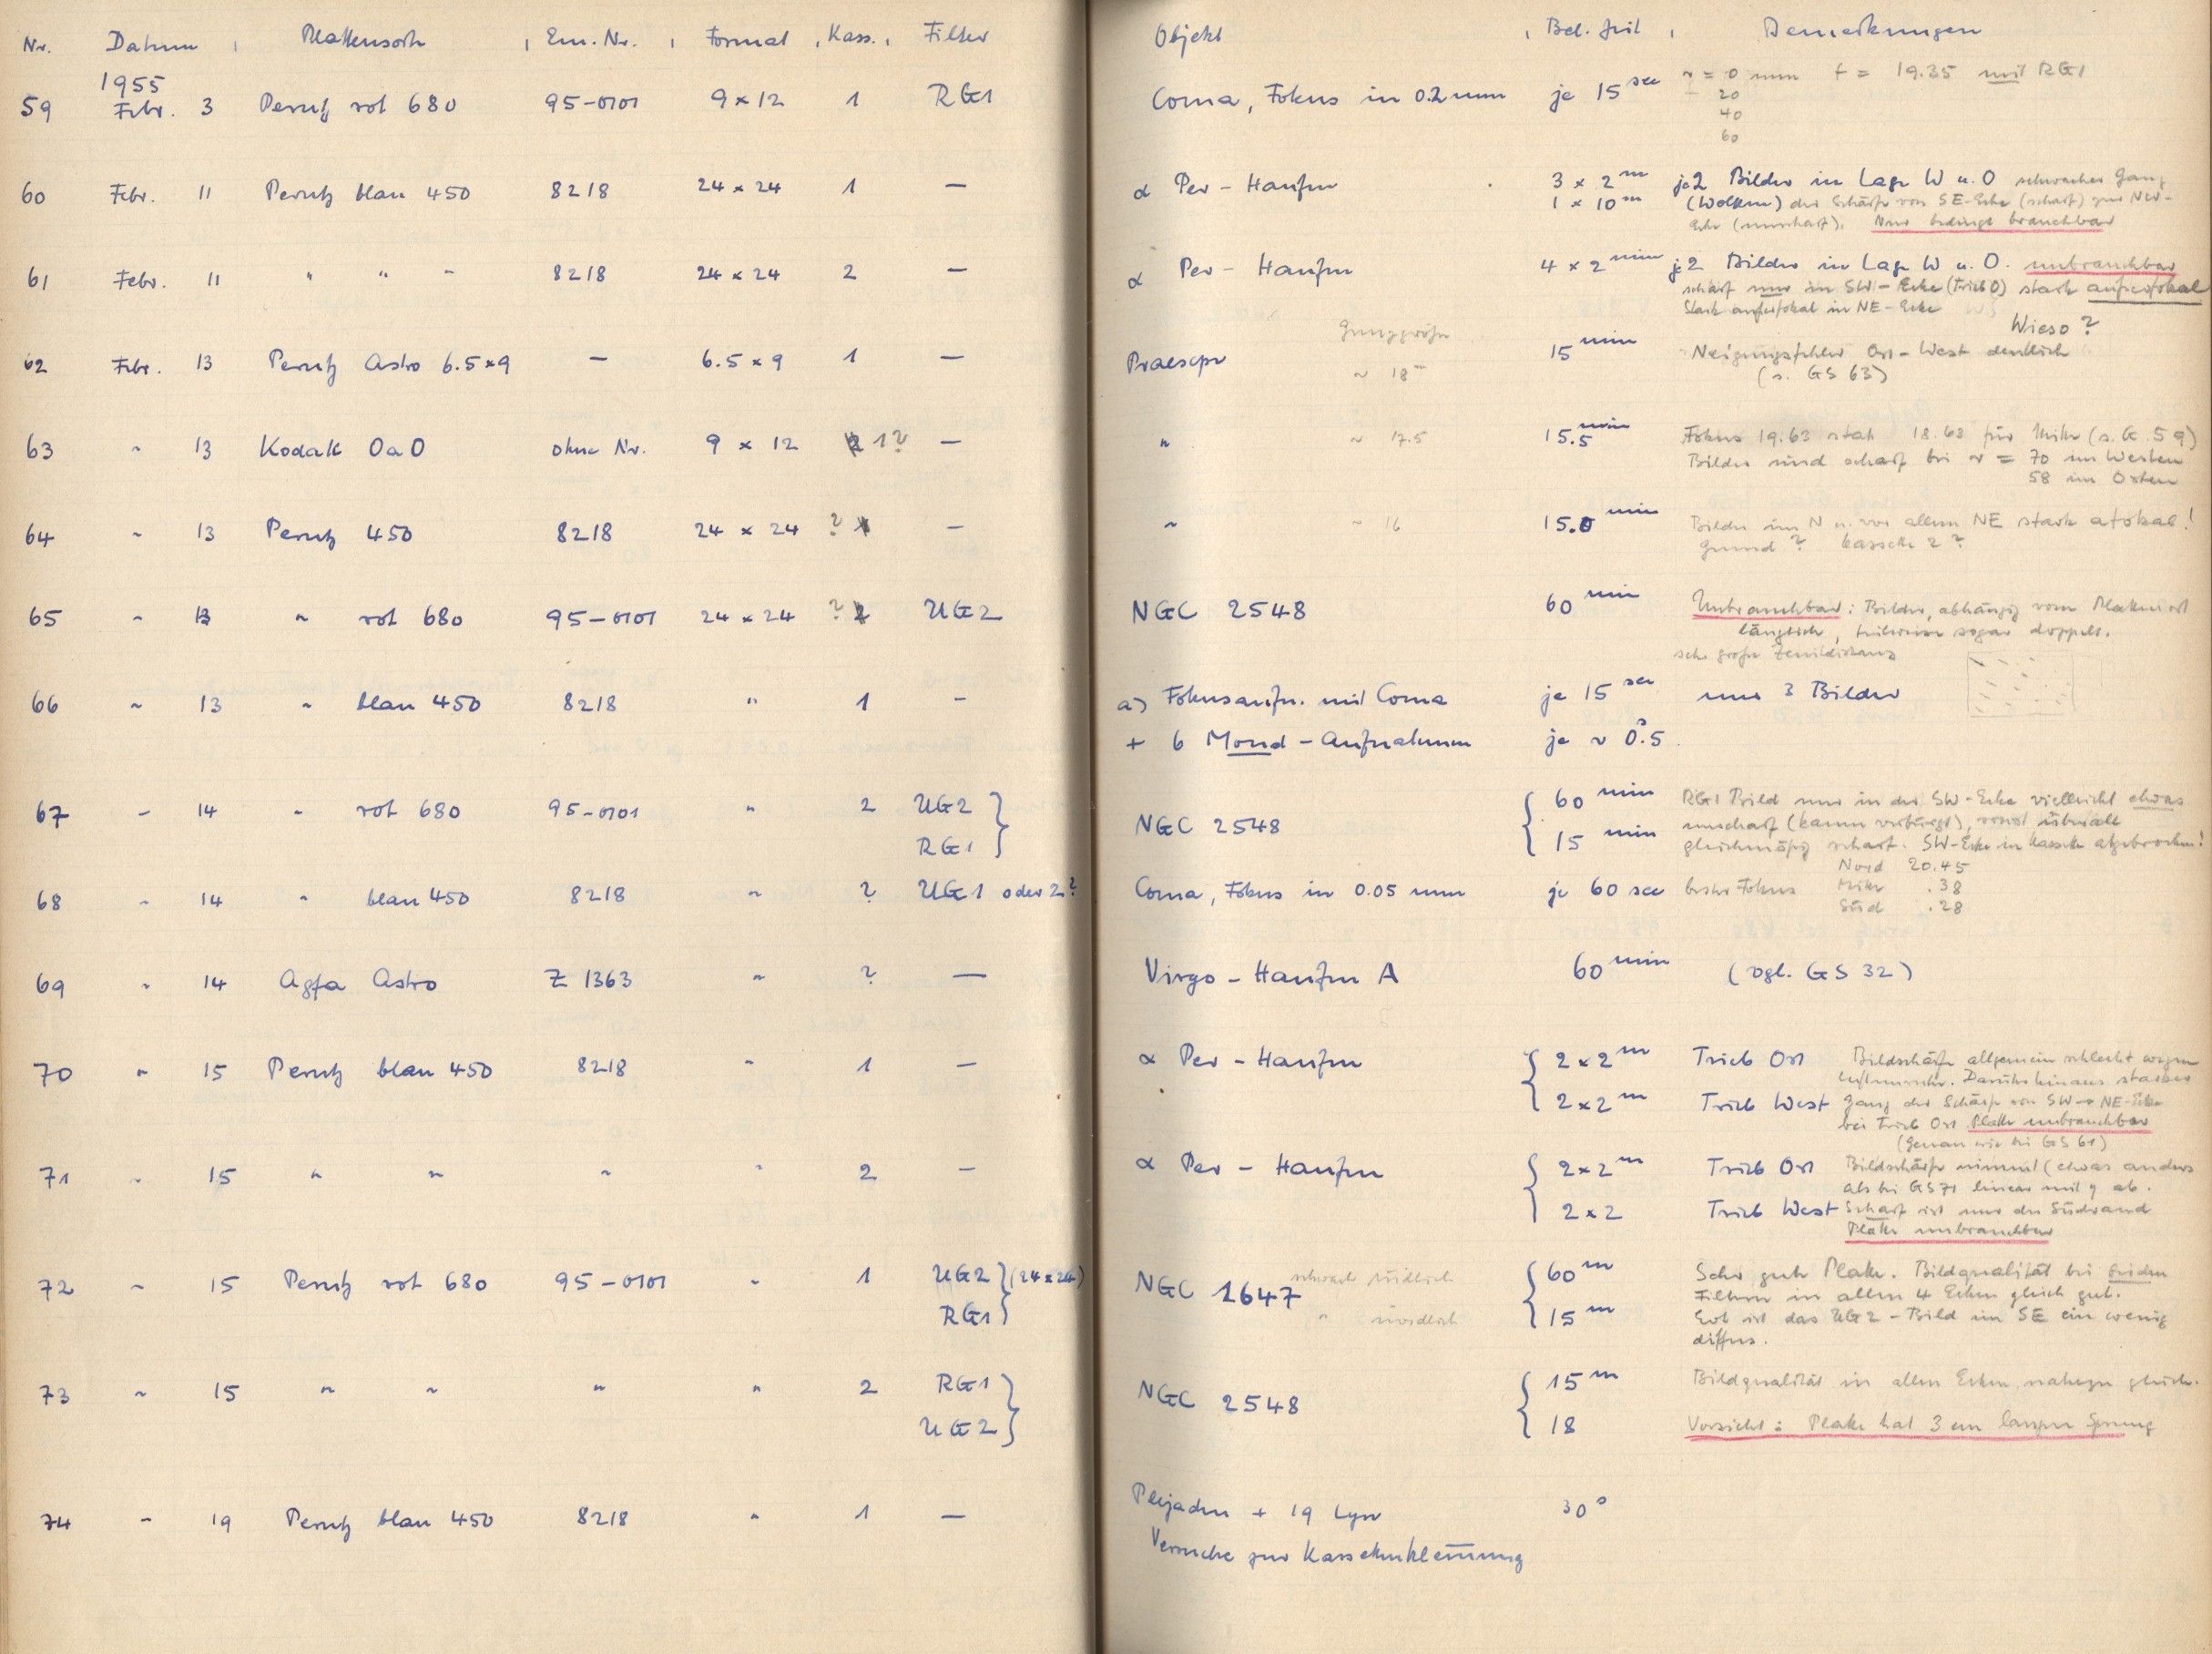 Nr. Datum , Plattensorte , Em. Nr. , Format , Kass. , Filter Objekt , Bel. Zeit , Bemerkungen
1955
59 Febr. 3 Perutz rot 680 95-0101 9 × 12 1 RG1 Coma, Fokus in 0.2 mm je 15 sec r = 0 mm f = 19.35 mit RG1
20
40
60
60 Febr. 11 Perutz blau 450 8218 24 × 24 1 — α Per - Haufen 3 × 2 m je 2 Bilder in Lage W u. O schwacher Gang
1 × 10 m (Wolken) der Schärfe von SE-Ecke (scharf) zur NW-
Ecke (unscharf). Nur bedingt brauchbar
61 Febr. 11 " " " 8218 24 × 24 2 — α Per - Haufen 4 × 2 min je 2 Bilder in Lage W u. O. unbrauchbar
scharf nur in SW - Ecke (Trieb O) stark außerfokal
Stark außerfokal in NE-Ecke
Wieso?
Grenzgröße
62 Febr. 13 Perutz Astro 6.5×9 — 6.5 × 9 1 — Praesepe ~ 18 m 15 min Neigungsfehler Ost-West deutlich
(s. GS 63)
63 " 13 Kodak OaO ohne Nr. 9 × 12 1? — " ~ 17.5 15.5 min Fokus 19.63 statt 18.63 für Mitte (s. G. 59)
Bilder sind scharf bei r = 70 im Westen
58 im Osten
64 " 13 Perutz 450 8218 24 × 24 ? — " ~ 16 15.0 min Bilder im N u. vor allem NE stark afokal!
Grund? Kassette 2?
65 " 13 " rot 680 95-0101 24 × 24 ? 2 UG2 NGC 2548 60 min Unbrauchbar: Bilder, abhängig vom Plattenort
länglich, teilweise sogar doppelt.
sehr große Zenitdistanz
66 " 13 " blau 450 8218 " 1 — a) Fokusaufn. mit Coma je 15 sec nur 3 Bilder
+ 6 Mond - Aufnahmen je ~ 0.5 s
67 " 14 " rot 680 95-0101 " 2 UG2 } NGC 2548 { 60 min RG1 Bild nur in der SW-Ecke vielleicht etwas
RG1 15 min unscharf (kaum verbürgt), sonst überall
gleichmäßig scharf. SW-Ecke in Kassette abgebrochen!
68 " 14 " blau 450 8218 " ? UG1 oder 2? Coma, Fokus in 0.05 mm je 60 sec bester Fokus Nord 20.45
Mitte .38
Süd .28
69 " 14 Agfa Astro Z 1363 " ? — Virgo - Haufen A 60 min (vgl. GS 32)
70 " 15 Perutz blau 450 8218 " 1 — α Per - Haufen { 2 × 2 m Trieb Ost Bildschärfe allgemein schlecht wegen
Luftunruhe. Darüberhinaus starker
2 × 2 m Trieb West Gang der Schärfe von SW → NE-Ecke
bei Trieb Ost. Platte unbrauchbar
(Genau wie bei GS 61)
71 " 15 " " " " 2 — α Per - Haufen { 2 × 2 m Trieb Ost Bildschärfe nimmt (etwas anders
als bei GS 71 linear mit y ab.
2 × 2 Trieb West Scharf ist nur der Südrand
Platte unbrauchbar
72 " 15 Perutz rot 680 95-0101 " 1 UG2 } (24 × 24) NGC 1647 schwach südlich { 60 m Sehr gute Platte. Bildqualität bei beiden
RG1 " nördlich 15 m Filtern in allen 4 Ecken gleich gut.
Evt ist das UG2 - Bild im SE ein wenig
diffus.
73 " 15 " " " " 2 RG1 } NGC 2548 { 15 m Bildqualität in allen Ecken nahezu gleich.
UG2 18 Vorsicht: Platte hat 3 cm langen Sprung
74 " 19 Perutz blau 450 8218 " 1 — Plejaden + 19 Lyn 30 s
Versuche zur Kassettenklemmung